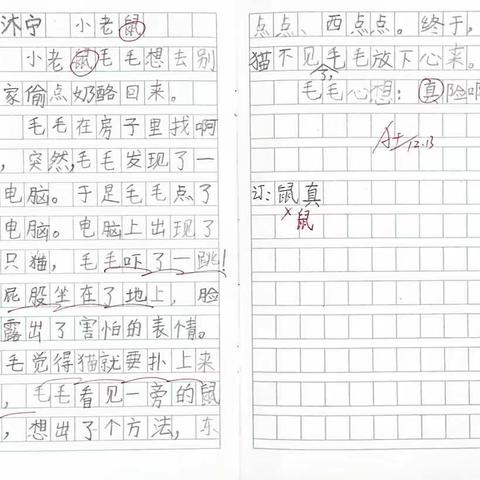 沐宁 小老鼠
小老鼠毛毛想去别
家偷点奶酪回来。
毛毛在房子里找啊
，突然，毛毛发现了一
电脑。于是毛毛点了
电脑。电脑上出现了
只猫，毛毛吓了一跳！
屁股坐在了地上，脸
露出了害怕的表情。
毛觉得猫就要扑上来
，毛毛看见一旁的鼠
，想出了个方法，东
点点、西点点。终于，
猫不见毛毛放下心来。
毛毛心想：真险啊
A+ 12.13
订：鼠真
鼠